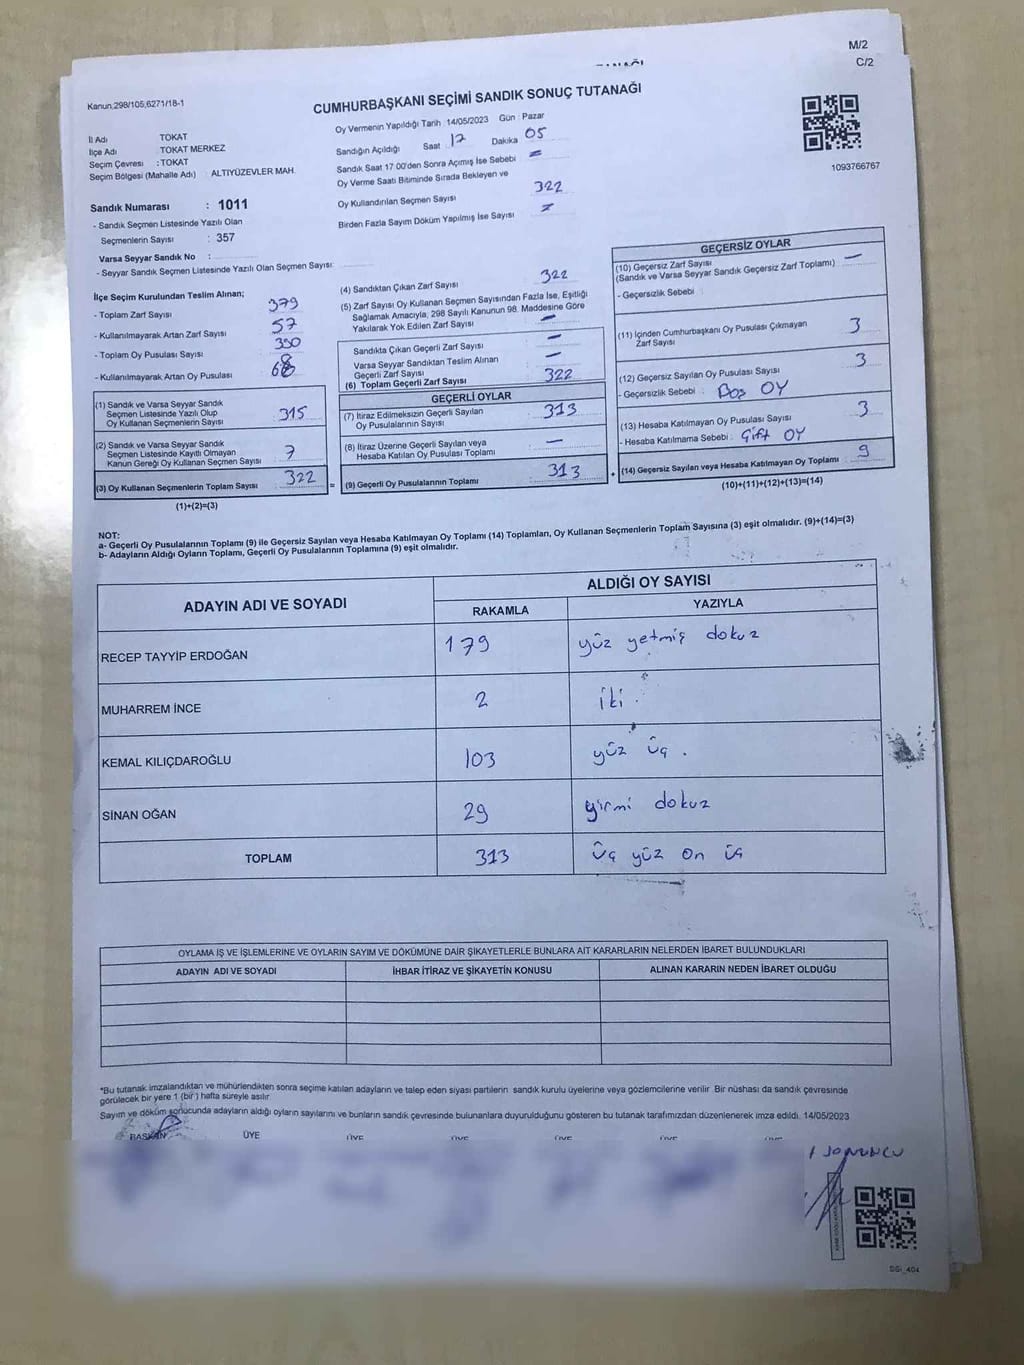 M/2
C/2
Kanun;298/105,6271/18-1
CUMHURBAŞKANI SEÇİMİ SANDIK SONUÇ TUTANAĞI
1093766767
İl Adı TOKAT
İlçe Adı TOKAT MERKEZ
Seçim Çevresi : TOKAT
Seçim Bölgesi (Mahalle Adı) ALTIYÜZEVLER MAH.
Sandık Numarası : 1011
- Sandık Seçmen Listesinde Yazılı Olan
Seçmenlerin Sayısı : 357
Varsa Seyyar Sandık No :
- Seyyar Sandık Seçmen Listesinde Yazılı Olan Seçmen Sayısı:
Oy Vermenin Yapıldığı Tarih 14/05/2023 Gün : Pazar
Sandığın Açıldığı Saat 17 Dakika 05
Sandık Saat 17 00'den Sonra Açımış İse Sebebi
Oy Verme Saati Bitiminde Sırada Bekleyen ve
Oy Kullandırılan Seçmen Sayısı 322
Birden Fazla Sayım Döküm Yapılmış İse Sayısı
İlçe Seçim Kurulundan Teslim Alınan;
- Toplam Zarf Sayısı 379
- Kullanılmayarak Artan Zarf Sayısı 57
- Toplam Oy Pusulası Sayısı
- Kullanılmayarak Artan Oy Pusulası
(1) Sandık ve Varsa Seyyar Sandık
Seçmen Listesinde Yazılı Olup
Oy Kullanan Seçmenlerin Sayısı 315
(2) Sandık ve Varsa Seyyar Sandık
Seçmen Listesinde Kayıtlı Olmayan
Kanun Gereği Oy Kullanan Seçmen Sayısı 7
(3) Oy Kullanan Seçmenlerin Toplam Sayısı 322 =
(1)+(2)=(3)
(4) Sandıktan Çıkan Zarf Sayısı 322
(5) Zarf Sayısı Oy Kullanan Seçmen Sayısından Fazla İse, Eşitliği
Sağlamak Amacıyla, 298 Sayılı Kanunun 98. Maddesine Göre
Yakılarak Yok Edilen Zarf Sayısı —
Sandıkta Çıkan Geçerli Zarf Sayısı —
Varsa Seyyar Sandıktan Teslim Alınan
Geçerli Zarf Sayısı —
(6) Toplam Geçerli Zarf Sayısı 322
GEÇERLİ OYLAR
(7) İtiraz Edilmeksizin Geçerli Sayılan
Oy Pusulalarının Sayısı 313
(8) İtiraz Üzerine Geçerli Sayılan veya
Hesaba Katılan Oy Pusulası Toplamı —
(9) Geçerli Oy Pusulalarının Toplamı 313 +
GEÇERSİZ OYLAR
(10) Geçersiz Zarf Sayısı —
(Sandık ve Varsa Seyyar Sandık Geçersiz Zarf Toplamı)
- Geçersizlik Sebebi
(11) İçinden Cumhurbaşkanı Oy Pusulası Çıkmayan
Zarf Sayısı 3
(12) Geçersiz Sayılan Oy Pusulası Sayısı 3
- Geçersizlik Sebebi : Boş OY
(13) Hesaba Katılmayan Oy Pusulası Sayısı 3
- Hesaba Katılmama Sebebi : Çift OY
(14) Geçersiz Sayılan veya Hesaba Katılmayan Oy Toplamı 9
(10)+(11)+(12)+(13)=(14)
NOT:
a- Geçerli Oy Pusulalarının Toplamı (9) ile Geçersiz Sayılan veya Hesaba Katılmayan Oy Toplamı (14) Toplamları, Oy Kullanan Seçmenlerin Toplam Sayısına (3) eşit olmalıdır. (9)+(14)=(3)
b- Adayların Aldığı Oyların Toplamı, Geçerli Oy Pusulalarının Toplamına (9) eşit olmalıdır.
ADAYIN ADI VE SOYADI ALDIĞI OY SAYISI
RAKAMLA YAZIYLA
RECEP TAYYİP ERDOĞAN 179 yüz yetmiş dokuz
MUHARREM İNCE 2 iki
KEMAL KILIÇDAROĞLU 103 yüz üç .
SİNAN OĞAN 29 yirmi dokuz
TOPLAM 313 üç yüz on üç
OYLAMA İŞ VE İŞLEMLERİNE VE OYLARIN SAYIM VE DÖKÜMÜNE DAİR ŞİKAYETLERLE BUNLARA AİT KARARLARIN NELERDEN İBARET BULUNDUKLARI
ADAYIN ADI VE SOYADI İHBAR İTİRAZ VE ŞİKAYETİN KONUSU ALINAN KARARIN NEDEN İBARET OLDUĞU
*Bu tutanak imzalandıktan ve mühürlendikten sonra seçime katılan adayların ve talep eden siyasi partilerin sandık kurulu üyelerine veya gözlemcilerine verilir. Bir nüshası da sandık çevresinde
görülecek bir yere 1 (bir) hafta süreyle asılır.
Sayım ve döküm sonucunda adayların aldığı oyların sayılarını ve bunların sandık çevresinde bulunanlara duyurulduğunu gösteren bu tutanak tarafımızdan düzenlenerek imza edildi. 14/05/2023
BAŞKAN ÜYE ÜYE ÜYE ÜYE ÜYE